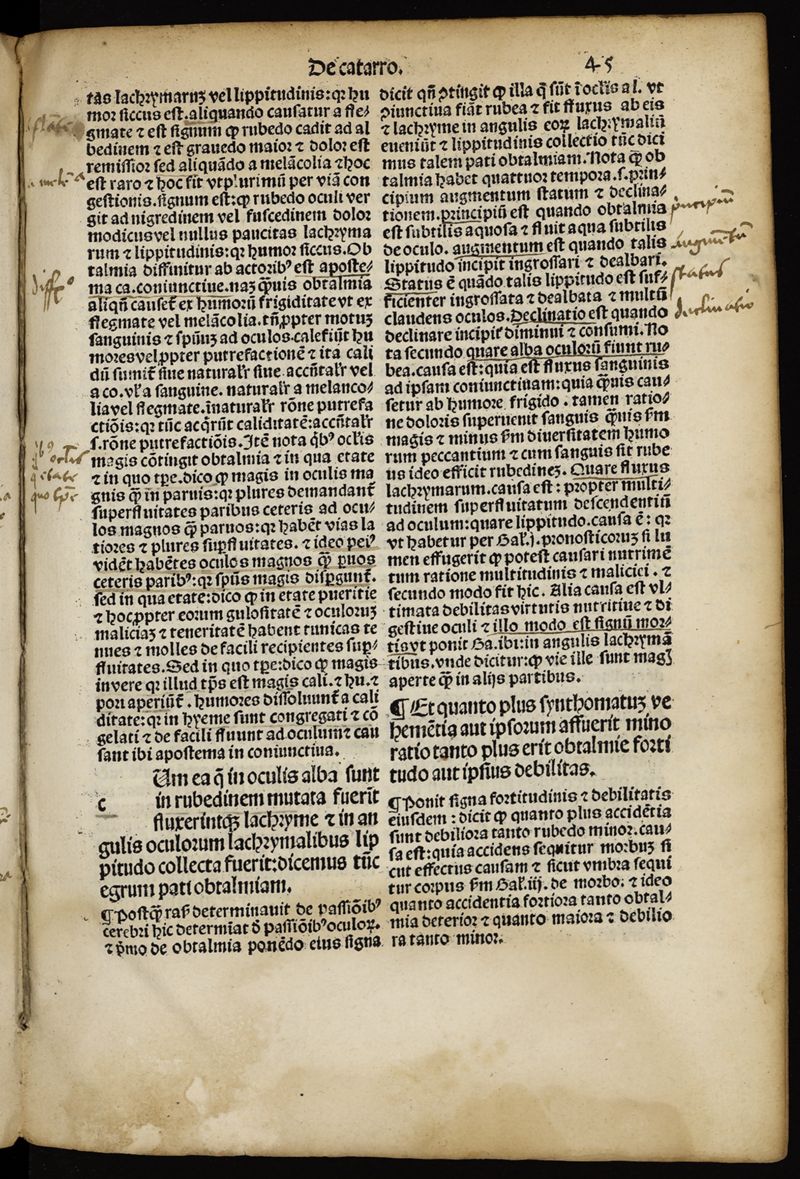 De catarro. 45
tas lachrymaruꝫ vel lippitudinis:qꝛ hu
moꝛ siccus est.aliquando causatur a fle⸗
gmate ⁊ est signum ꝙ rubedo cadit ad al
bedinem ⁊ est grauedo maioꝛ ⁊ doloꝛ est
remissioꝛ sed aliquādo a melācolia ⁊ hoc
est raro ⁊ hoc fit vtplurimū per viā con
gestionis.signum est:ꝙ rubedo oculi ver
git ad nigredinem vel fuscedinem doloꝛ
modicus vel nullus paucitas lachryma
rum ⁊ lippitudinis:qꝛ humoꝛ siccus.Ob
talmia diffinitur ab actoribꝰ est aposte⸗
ma ca.coniunctiue.naꝫ q̄uis obtalmia
aliqñ causet̄ ex humoꝛū frigiditate vt ex
flegmate vel melācolia.tñ ꝓpter motuꝫ
sanguinis ⁊ spūuꝫ ad oculos.calefiūt hu
moꝛes vel ꝓpter putrefactionē ⁊ ita cali
dū sumit̄ siue naturalr̄ siue accñtalr̄ vel
a co.vl̄ a sanguine. naturalr̄ a melanco⸗
lia vel flegmate.īnaturalr̄ rōne putrefa
ctiōis:qꝛ tūc acqrūt caliditatē:accñtalr̄
s.rōne putrefactiōis.Itē nota qͥbꝰ oclīs
magis cōtingit obtalmia ⁊ in qua etate
⁊ in quo tpe.dico ꝙ magis in oculis ma
gnis q̄ in paruis:qꝛ plures demandant̄
superfluitates paribus ceteris ad ocu⸗
los magnos q̄ paruos:qꝛ habēt vias la
tioꝛes ⁊ plures suꝑfluitates. ⁊ ideo peiꝰ
vidēt habētes oculos magnos q̄ ꝑuos
ceteris paribꝰ:qꝛ spūs magis disꝑgunt̄.
sed in qua etate:dico ꝙ in etate pueritie
⁊ hoc ꝓpter eoꝛum gulositatē ⁊ oculoꝛuꝫ
maliciaꝫ ⁊ teneritatē habent tunicas te
nues ⁊ molles de facili recipientes suꝑ⸗
fluitates.Sed in quo tpe:dico ꝙ magis
in vere qꝛ illud tp̄s est magis cali.⁊ hu.⁊
poꝛi aperiūt̄. humoꝛes dissoluunt̄ a cali
ditate:qꝛ in hyeme sunt congregati ⁊ cō
gelati ⁊ de facili fluunt ad oculum ⁊ cau
sant ibi apostema in coniunctiua.
Um ea q̄ in oculis alba sunt
c in rubedinem mutata fuerīt
fluxerintqꝫ lachryme ⁊ in an
gulis oculoꝛum lachrymalibus lip
pitudo collecta fuerit:dicemus tūc
egrum pati obtalmiam.
¶ Postꝙ̄ ras̄ determinauit de passiōibꝰ
cerebꝛi hic determīat d̄ passiōibꝰ oculoꝝ.
⁊ pͥmo de obtalmia ponēdo eius signa
dicit qñ ꝯtingit ꝙ illa q̄ sūt ī oclīs al. vt
ꝯiunctiua fiāt rubea ⁊ fit fluxus ab eis
⁊ lachryme in angulis eoꝝ lachrymaliū
eueniūt ⁊ lippitudinis collectio tūc dici
mus talem pati obtalmiam. Nota ꝙ ob
talmia habet quattuoꝛ tempoꝛa.s.pꝛin⸗
cipium augmentum statum ⁊ declina⸗
tionem.pꝛincipiū est quando obtalmia
est subtilis aquosa ⁊ fluit aqua subtilis
de oculo. augmentum est quando talis
lippitudo incipit ingrossari ⁊ dealbari.
Status ē quādo talis lippitudo est suf⸗
ficienter ingrossata ⁊ dealbata ⁊ multū
claudens oculos.Declinatio est quando
declinare incipit̄ diminui ⁊ consumi. No
ta secundo quare alba oculoꝛū fiunt ru⸗
bea.causa est:quia est fluxus sanguinis
ad ipsam coniunctiuam:quia q̄uis cau⸗
setur ab humoꝛe frigido. tamen ratio⸗
ne doloꝛis superuenit sanguis q̄uis s̄m
magis ⁊ minus s̄m diuersitatem humo
rum peccantium ⁊ cum sanguis sit rube
us ideo efficit rubedineꝫ. Quare fluxus
lachrymarum.causa est: pꝛopter multi⸗
tudinem superfluitatum descendentiū
ad oculum:quare lippitudo.causa ē: qꝛ
vt habetur per Gal̄.j.pꝛonosticoꝛuꝫ si lu
men effugerit ꝙ potest causari nutrimē
tum ratione multitudinis ⁊ maliciei. ⁊
secundo modo fit hic. Alia causa est vl⸗
timata debilitas virtutis nutritiue ⁊ di
gestiue oculi ⁊ illo modo est signū moꝛ⸗
tis vt ponit Ga.ibi:in angulis lachrymā
tibus.vnde dicitur:ꝙ vie ille sunt maḡ
aperte q̄ in alijs partibus.
¶ Et quanto plus synthomatuꝫ ve
hemētia aut ipsoꝛum affuerit mino
ratio tanto plus erit obtalmie foꝛti
tudo aut ipsius debilitas.
¶ Ponit signa foꝛtitudinis ⁊ debilitatis
eiusdem: dicit ꝙ quanto plus accidētia
sunt debilioꝛa tanto rubedo minoꝛ.cau⸗
sa est:quia accidens sequitur moꝛbuꝫ si
cut effectus causam ⁊ sicut vmbꝛa sequi
tur coꝛpus s̄m Gal̄.iij. de moꝛbo. ⁊ ideo
quanto accidentia foꝛtioꝛa tanto obtal⸗
mia deterioꝛ ⁊ quanto maioꝛa ⁊ debilio
ra tanto minoꝛ.
principiū
augmentū
status
declinatio